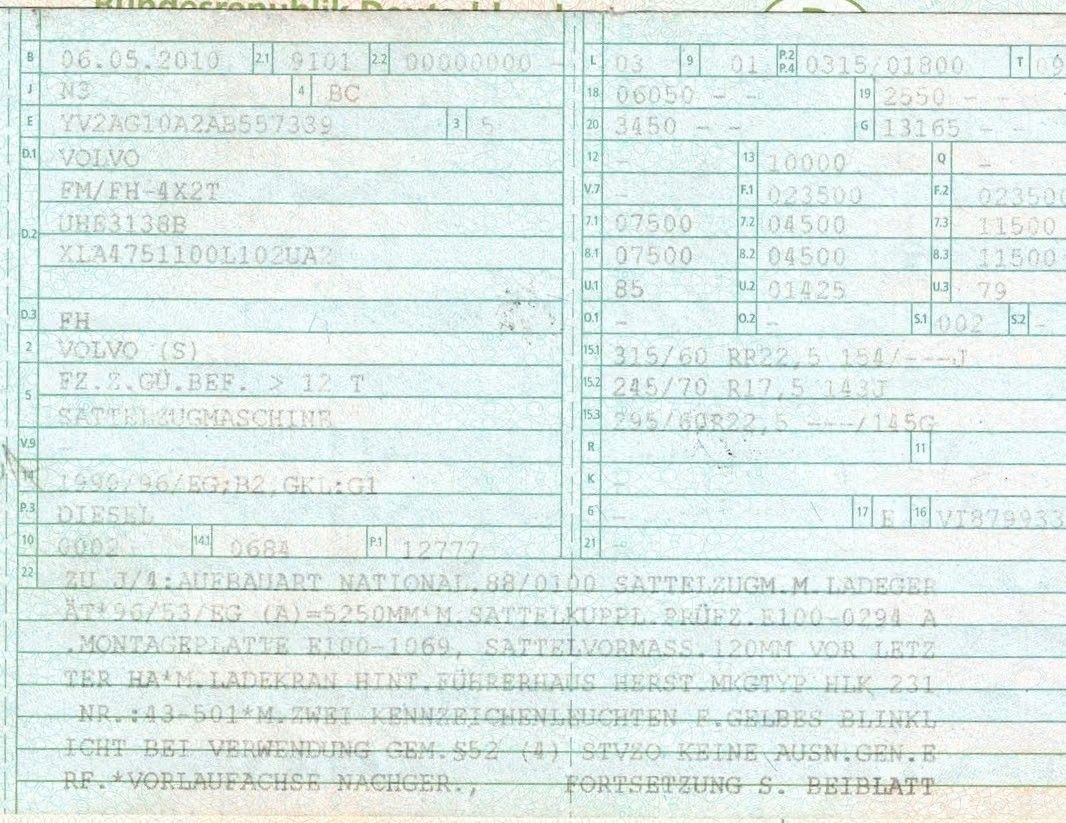 B 06.05.2010 2.1 9101 2.2 00000000 -
J N3 4 BC
E YV2AG10A2AB557339 3 5
D.1 VOLVO
FM/FH-4X2T
D.2 UHE3138B
XLA4751100L102UA2
D.3 FH
2 VOLVO (S)
5 FZ.Z.GÜ.BEF. > 12 T
SATTELZUGMASCHINE
V.9 -
14 1999/96/EG;B2,GKL:G1
P.3 DIESEL
10 0002 14.1 0684 P.1 12777
L 03 9 01 P.2 P.4 0315/01800 T 09
18 06050 - - 19 2550 - -
20 3450 - - G 13165 - -
12 - 13 10000 Q -
V.7 - F.1 023500 F.2 023500
7.1 07500 7.2 04500 7.3 11500
8.1 07500 8.2 04500 8.3 11500
U.1 85 U.2 01425 U.3 79
O.1 - O.2 - S.1 002 S.2 -
15.1 315/60 RR22,5 154/---J
15.2 245/70 R17,5 143J
15.3 295/60R22,5 ---/145G
R 11
K -
6 - 17 E 16 VI879933
21 -
22 ZU J/4:AUFBAUART NATIONAL.88/0100 SATTELZUGM.M.LADEGER
ÄT*96/53/EG (A)=5250MM*M.SATTELKUPPL.PRÜFZ.E100-0294 A
.MONTAGEPLATTE E100-1069, SATTELVORMASS.120MM VOR LETZ
TER HA*M.LADEKRAN HINT.FÜHRERHAUS HERST.MKGTYP HLK 231
NR.:43-501*M.ZWEI KENNZEICHENLEUCHTEN F.GELBES BLINKL
ICHT BEI VERWENDUNG GEM.§52 (4) STVZO KEINE AUSN.GEN.E
RF.*VORLAUFACHSE NACHGER., FORTSETZUNG S. BEIBLATT